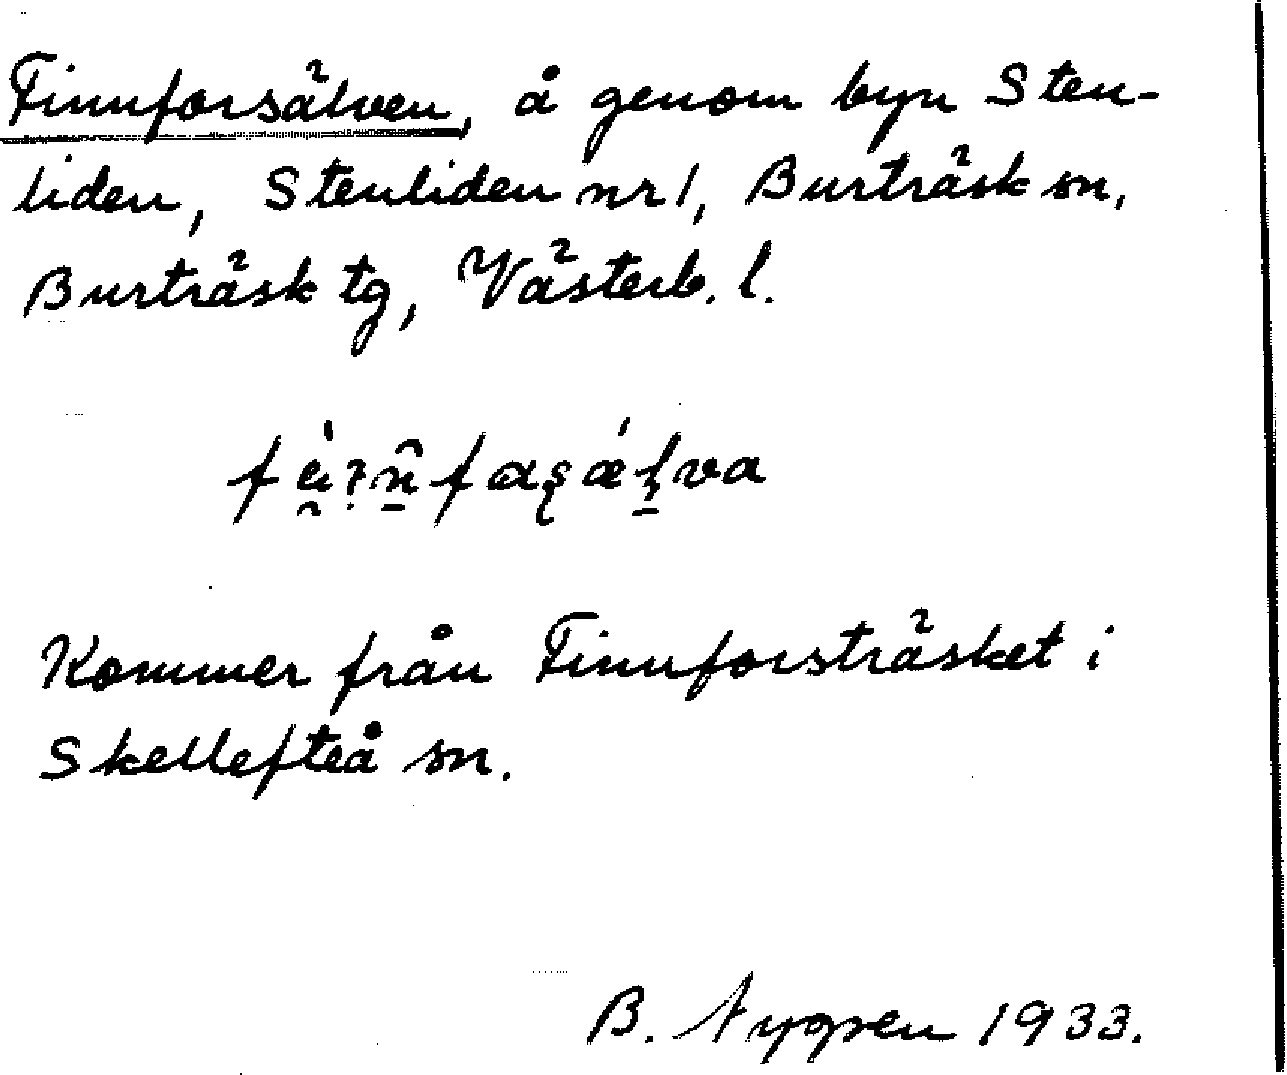 Finnforsälven, å genom byn Sten-
liden, Stenliden nr 1, Burträsk sn,
Burträsk tg, Västerb. l.
Kommer från Finnforsträsket i
Skellefteå sn.
B. Nygren 1933.